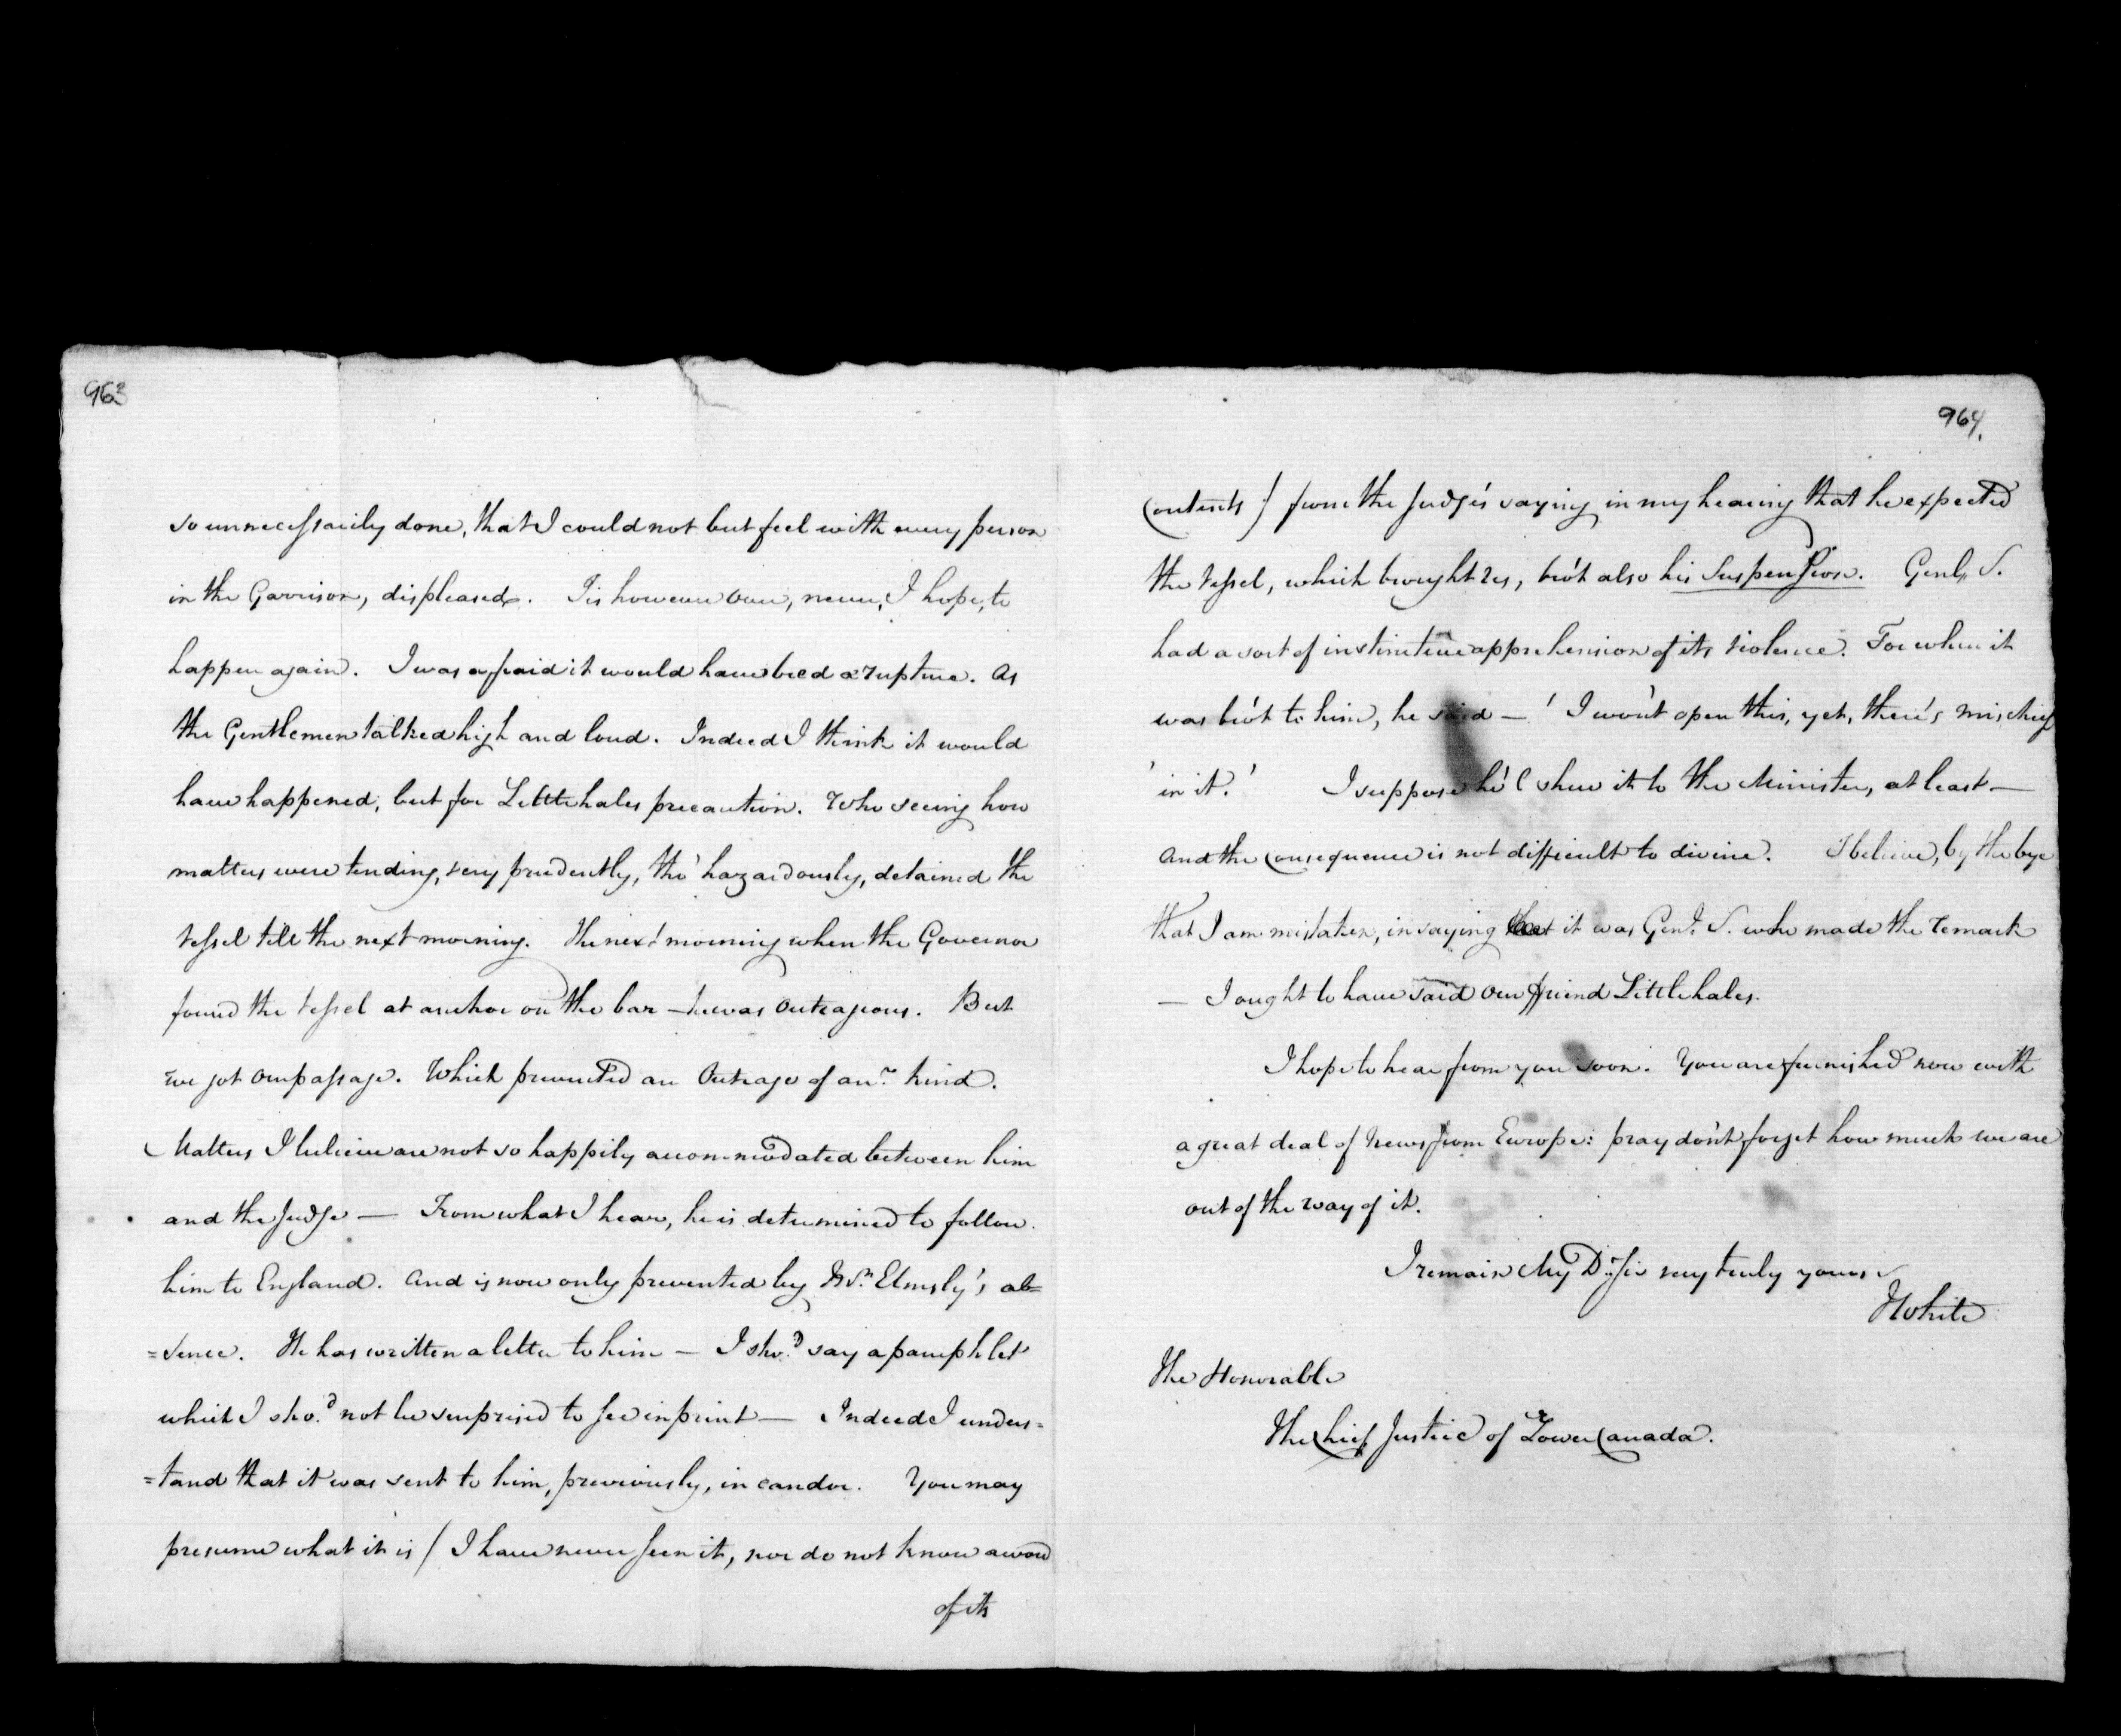 963
so unnecessarily done, that I could not but feel with every person
in the Garrison, displeased. Tis however over, never, I hope, to
happen again. I was afraid it would have bred a rupture. As
the Gentlemen talked high and loud. Indeed I think it would
have happened, but for Littlehales precaution. Who seeing how
matters were tending, very prudently, tho' hazardously, detained the
vessel till the next morning. The next morning when the Governor
found the vessel at anchor on the bar — he was outrageous. But
we got our passage. Which prevented an Outrage of anr. kind.
Matters I believe are not so happily accommodated between him
and the Judge — From what I hear, he is determined to follow
him to England. And is now only prevented by Mr. Elmsly's ab=
=sence. He has written a letter to him — I shod. say a pamphlet
which I shod. not be surprised to see in print — Indeed I unders=
=tand that it was sent to him, previously, in candor. You may
presume what it is / I have never seen it, nor do not know a word
of its
964.
Contents / from the Judge's saying in my hearing that he expected
the vessel, which brought us, bro't also his Suspension. Genl. S.
had a sort of instinctive apprehension of its violence. For when it
was bro't to him, he said — ' I won't open this, yet, there's mischief
' in it.' I suppose he'l shew it to the Minister, at least —
And the Consequence is not difficult to divine. I believe, by the bye
that I am mistaken, in saying that it was Genl. S. who made the remark
— I ought to have said our friend Littlehales.
I hope to hear from you soon. You are furnished now with
a great deal of News from Europe: pray don't forget how much we are
out of the way of it.
I remain My Dr. Sir very truly yours
JWhite
The Honorable
The Chief Justice of Lower Canada.